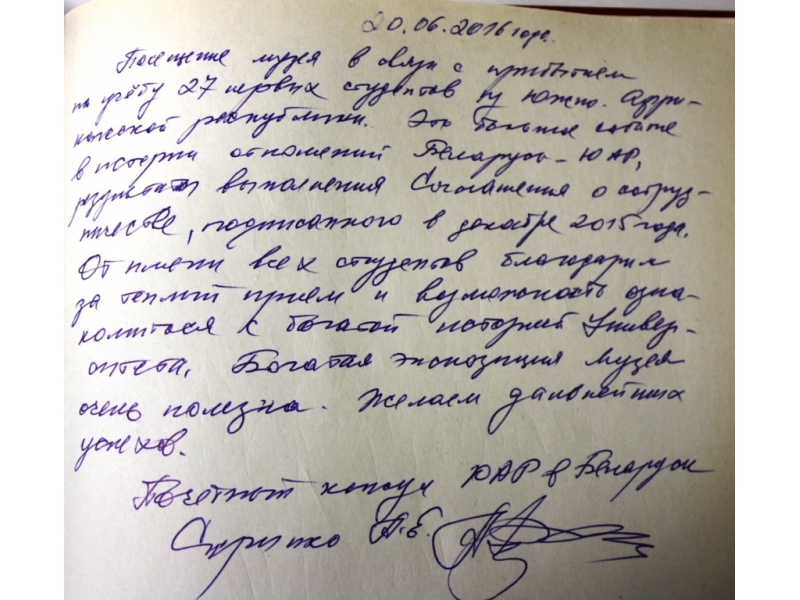 20.06.2016 года.
Посещение музея в связи с прибытием
на учёбу 27 первых студентов из Южно-Афри-
канской республики. Это большое событие
в истории отношений Беларусь-ЮАР,
результат выполнения Соглашения о сотруд-
ничестве, подписанного в декабре 2015 года.
От имени всех студентов благодарим
за теплый прием и возможность озна-
комиться с богатой историей Универ-
ситета. Богатая экспозиция музея
очень полезна. Желаем дальнейших
успехов.
Почетный консул ЮАР в Беларуси